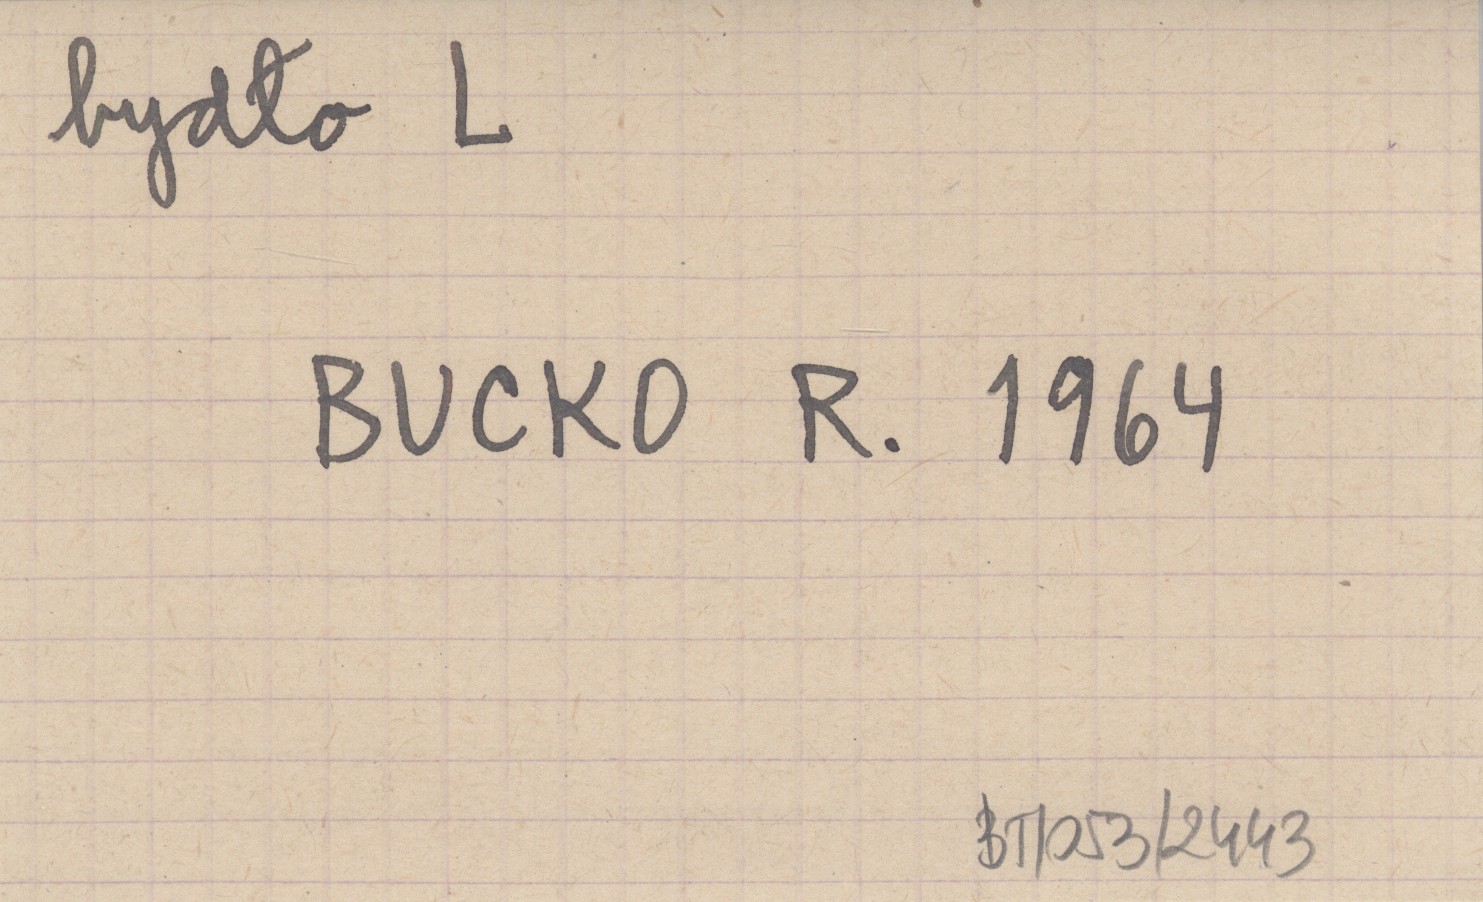 bydło L
BUCKO R. 1964
BT/053/2443